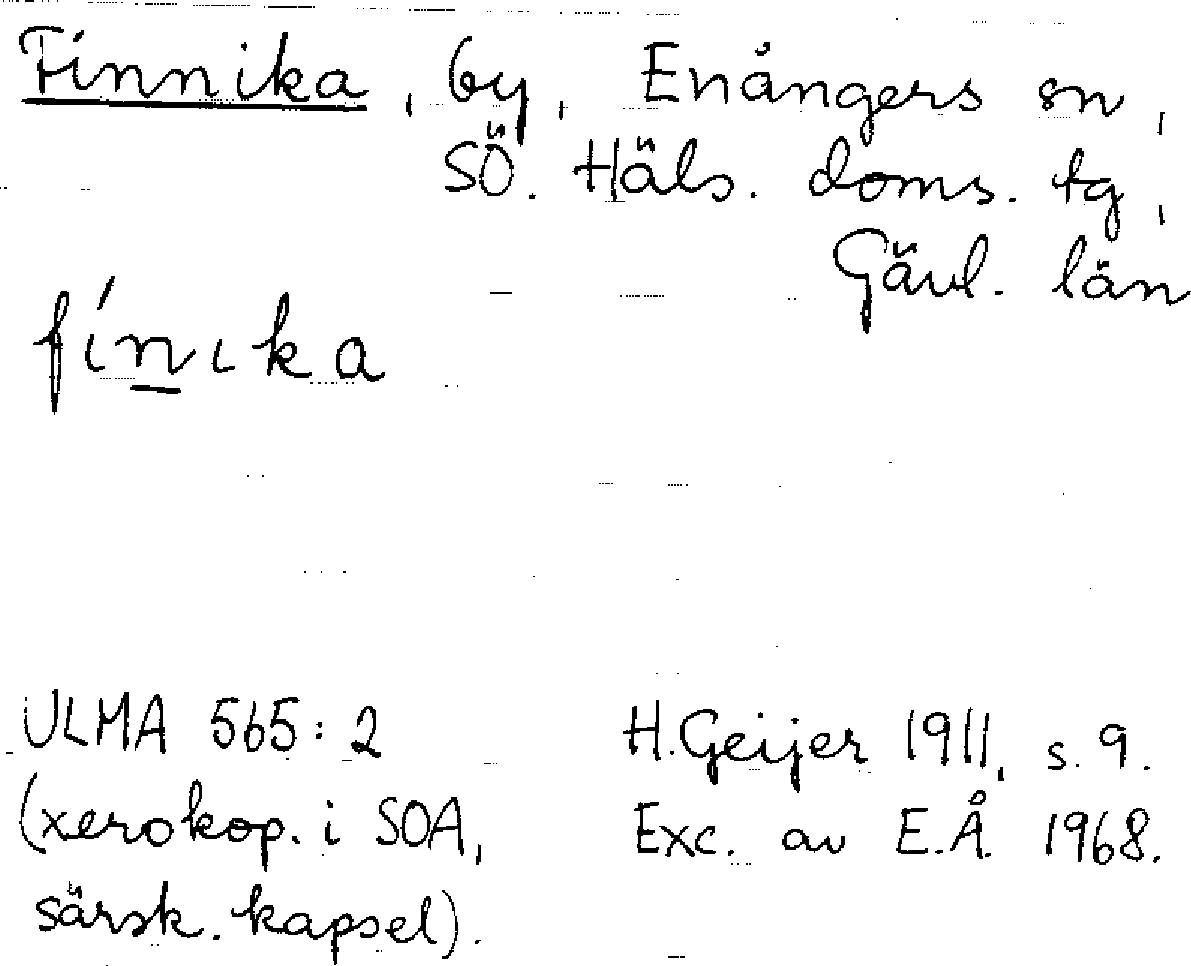 Finnika, by, Enångers sn,
SÖ. Häls. doms. tg,
Gävl. län
fínıka
ULMA 565:2
(xerokop. i SOA,
särsk. kapsel).
H. Geijer 1911, s. 9.
Exc. av E.Å. 1968.